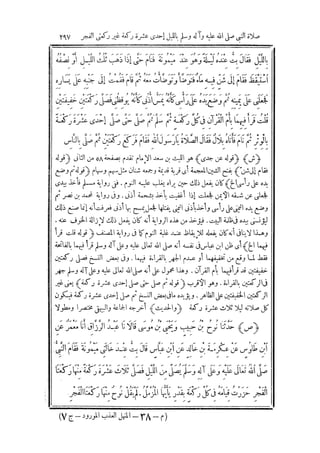 صلاة النبي صلى الله عليه وآله وسلم بالليل إحدى عشرة ركعة غير ركعتى الفجر ٢٩٧
بالليل فقال بت عنده ليلة وهو عند ميمونة فنام حتى إذا ذهب ثلث الليل أو نصفه
استيقظ فقام إلى شن فيه ماء فتوضأ وتوضأت معه ثم قام فقمت إلى جنبه على يساره
فجعلنى على يمينه ثم وضع يده على رأسى كأنه يمس أذنى كأنه يوقظنى فصلى ركعتين خفيفتين
قلت قرأ فيهما بأم القرآن فى كل ركعة ثم سلم ثم صلى حتى صلى إحدى عشرة ركعة
بالوتر ثم نام فأتاه بلال فقال الصلاة يارسول الله فقام فركع ركعتين ثم صلى بالناس
﴿ش﴾ ﴿قوله عن جدى﴾ هو الليث بن سعد الإمام تقدم بصفحة من الثانى ﴿قوله
فقام إلى شن﴾ بفتح الشين المعجمة أى قربة قديمة وجمعه شنان مثل سهم وسهام ﴿قوله ثم وضع
يده على رأسى الخ﴾ كان يفعل ذلك حين يراه يغلب عليه النوم. فى رواية مسلم فأخذ بيدى
فجعلنى من شقه الأيمن فجعلت إذا أغفيت يأخذ بشحمة أذنى. وفى رواية محمد بن نصر ثم
وضع يده اليمنى على رأسى وأخذ بأذنى اليمنى يفتلها فجعل يمسح بها أذنى فعرفت أنه إنما صنع ذلك
ليؤنسنى بيده فى ظلمة البيت. فيؤخذ من هذه الرواية أنه كان يفعل ذلك لإزالة الخوف عنه.
وهذا لاينافى أنه كان يفعله للإيقاظ عند غلبة النوم كما فى رواية المصنف ﴿قوله قلت قرأ
فيهما الخ﴾ أى ظن ابن عباس فى نفسه أنه صلى الله تعالى عليه وعلى آله وسلم قرأ فيهما بالفاتحة
فقط لما وقع من تخفيفهما أو عدم الجهر بالقراءة فيهما. وفى بعض النسخ فصلى ركعتين
خفيفتين قد قرأ فيهما بأم القرآن. وهذا محمول على أنه صلى الله تعالى عليه وعلى آله وسلم جهر
فى الركعتين بالقراءة. وهو الأقرب ﴿قوله ثم صلى حتى صلى إحدى عشرة ركعة﴾ يعنى غير
الركعتين الخفيفتين على الظاهر. ويؤيده مافى بعض النسخ ثم صلى إحدى عشرة ركعة فيكون
كل صلاته ليلا ثلاث عشرة ركعة ﴿والحديث﴾ أخرجه الجماعة والبيهقى مختصرا ومطولا
﴿ص﴾ حدثنا نوح بن حبيب ويحيى بن موسى قالا نا عبد الرزاق أنا معمر عن
ابن طاوس عن عكرمة بن خالد عن ابن عباس قال بت عند خالتى ميمونة فقام النبي
صلى الله تعالى عليه وعلى آله وسلم يصلى من الليل فصلى ثلاث عشرة ركعة منها ركعتا
الفجر حزرت قيامه فى كل ركعة بقدر يأيها المزمل. لم يقل نوح منها ركعتا الفجر
(م - ٣٨ - المنهل العذب المورود - ج ٧)